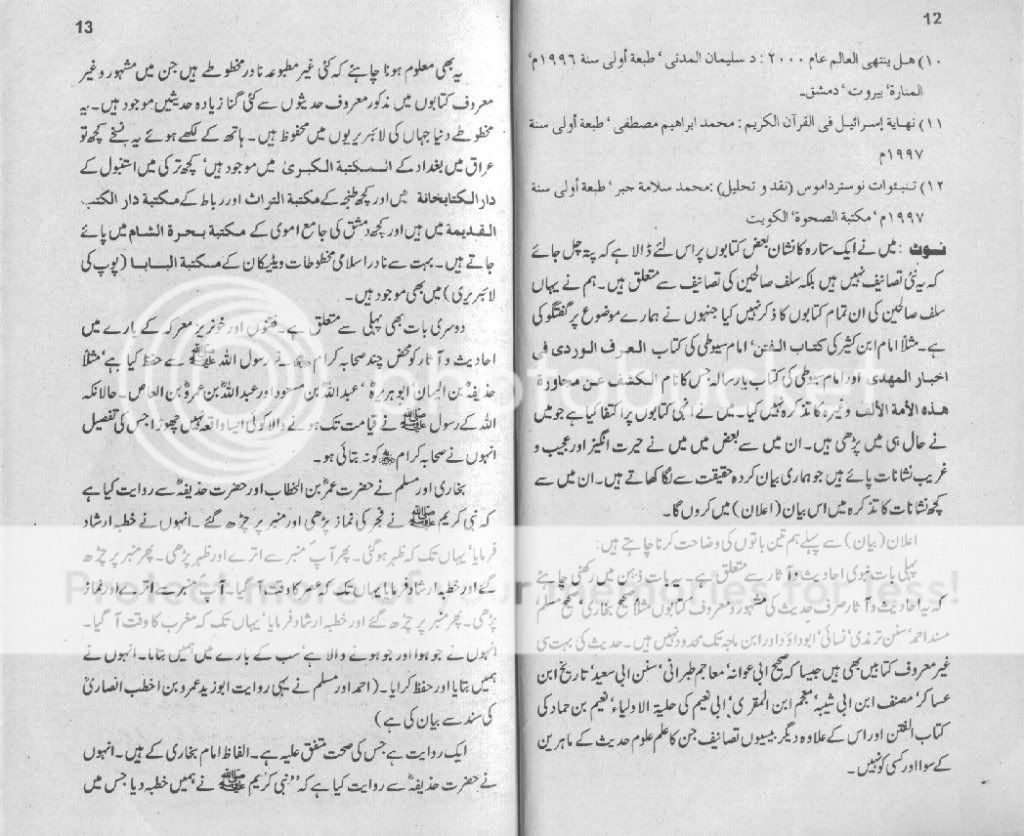 12
۱۰) هل ینتهی العالم عام ۲۰۰۰ : د سلیمان المدنی ‘ طبعة أولی سنة ۱۹۹۶م‘
المنارة‘ بیروت ‘ دمشق۔
۱۱) نهایة إسرائیل فی القرآن الکریم : محمد ابراهیم مصطفی ‘ طبعة أولی سنة
۱۹۹۷م
۱۲) تنبئوات نوسترداموس (نقد و تحلیل) :محمد سلامة جبر ‘ طبعة أولی سنة
۱۹۹۷م‘ مکتبة الصحوة‘ الکویت
نوٹ : میں نے ایک ستارہ کا نشان بعض کتابوں پر اس لئے ڈالا ہے کہ پتہ چل جائے
کہ یہ نئی تصانیف نہیں ہیں بلکہ سلف صالحین کی تصانیف سے متعلق ہیں۔ ہم نے یہاں
سلف صالحین کی ان تمام کتابوں کا ذکر نہیں کیا جنہوں نے ہمارے موضوع پر گفتگو کی
ہے۔ مثلاً امام ابن کثیر کی کتاب الفتن‘ امام سیوطی کی کتاب العرف الوردی فی
اخبار المهدی اور امام سیوطی کی کتاب یا رسالہ جس کا نام الکشف عن مجاوزة
هذه الأمة الألف وغیرہ کا تذکرہ نہیں کیا۔ میں نے انہی کتابوں پر اکتفا کیا ہے جو میں
نے حال ہی میں پڑھی ہیں۔ ان میں سے بعض میں میں نے حیرت انگیز اور عجیب و
غریب نشانات پائے ہیں جو ہماری بیان کردہ حقیقت سے لگا کھاتے ہیں۔ ان میں سے
کچھ نشانات کا تذکرہ میں اس بیان (اعلان) میں کروں گا۔
اعلان (بیان) سے پہلے ہم تین باتوں کی وضاحت کرنا چاہتے ہیں:
پہلی بات نبوی احادیث و آثار سے متعلق ہے۔ یہ بات ذہن میں رکھنی چاہئے
کہ یہ احادیث و آثار صرف حدیث کی مشہور و معروف کتابوں مثلاً صحیح بخاری‘ صحیح مسلم‘
مسند احمد‘ سنن ترمذی‘ نسائی‘ ابوداؤد اور ابن ماجہ تک محدود نہیں ہیں۔ حدیث کی بہت سی
غیر معروف کتابیں بھی ہیں جیسا کہ صحیح ابی عوانہ‘ معاجم طبرانی‘ سنن ابی سعید‘ تاریخ ابن
عساکر‘ مصنف ابن ابی شیبہ‘ معجم ابن المقری‘ ابی نعیم کی حلیة الاولیاء‘ نعیم بن حماد کی
کتاب الفتن اور اس کے علاوہ دیگر بیسیوں تصانیف جن کا علم علوم حدیث کے ماہرین
کے سوا اور کسی کو نہیں۔
13
یہ بھی معلوم ہونا چاہئے کہ کئی غیر مطبوعہ نادر مخطوطے ہیں جن میں مشہور و غیر
معروف کتابوں میں مذکور معروف حدیثوں سے کئی گنا زیادہ حدیثیں موجود ہیں۔ یہ
مخطوطے دنیا جہاں کی لائبریریوں میں محفوظ ہیں۔ ہاتھ کے لکھے ہوئے یہ نسخے کچھ تو
عراق میں بغداد کے المکتبة الکبریٰ میں موجود ہیں‘ کچھ ترکی میں استنبول کے
دار الکتابخانة میں اور کچھ طنجہ کے مکتبة التراث اور رباط کے مکتبة دار الکتب
القدیمة میں ہیں اور کچھ دمشق کی جامع اموی کے مکتبة بحرة الشام میں پائے
جاتے ہیں۔ بہت سے نادر اسلامی مخطوطات ویٹیکان کے مکتبة البابا (پوپ کی
لائبریری) میں بھی موجود ہیں۔
دوسری بات بھی پہلی سے متعلق ہے۔ فتنوں اور خونریز معرکہ کے بارے میں
احادیث و آثار کو محض چند صحابہ کرامؓ نے رسول اللہ ﷺ سے حفظ کیا ہے‘ مثلاً
حذیفہؓ بن الیمان‘ ابوہریرہؓ‘ عبداللہؓ بن مسعود اور عبداللہؓ بن عمروؓ بن العاص۔ حالانکہ
اللہ کے رسول ﷺ نے قیامت تک ہونے والا کوئی ایسا واقعہ نہیں چھوڑا جس کی تفصیل
انہوں نے صحابہ کرامؓ کو نہ بتائی ہو۔
بخاری اور مسلم نے حضرت عمرؓ بن الخطاب اور حضرت حذیفہؓ سے روایت کیا ہے
کہ نبی کریم ﷺ نے فجر کی نماز پڑھی اور منبر پر چڑھ گئے۔ انہوں نے خطبہ ارشاد
فرمایا‘ یہاں تک کہ ظہر ہو گئی۔ پھر آپؐ منبر سے اترے اور ظہر پڑھی۔ پھر منبر پر چڑھ
گئے اور خطبہ ارشاد فرمایا یہاں تک کہ عصر کا وقت آ گیا۔ آپؐ منبر سے اترے اور نماز
پڑھی۔ پھر منبر پر چڑھ گئے اور خطبہ ارشاد فرمایا‘ یہاں تک کہ مغرب کا وقت آ گیا۔
انہوں نے جو ہوا اور جو ہونے والا ہے‘ سب کے بارے میں ہمیں بتایا۔ انہوں نے
ہمیں بتایا اور حفظ کرایا۔ (احمد اور مسلم نے یہی روایت ابوزید عمرو بن اخطب انصاریؓ
کی سند سے بیان کی ہے)
ایک روایت ہے جس کی صحت متفق علیہ ہے۔ الفاظ امام بخاری کے ہیں۔ انہوں
نے حضرت حذیفہؓ سے روایت کیا ہے کہ ”نبی کریم ﷺ نے ہمیں خطبہ دیا جس میں